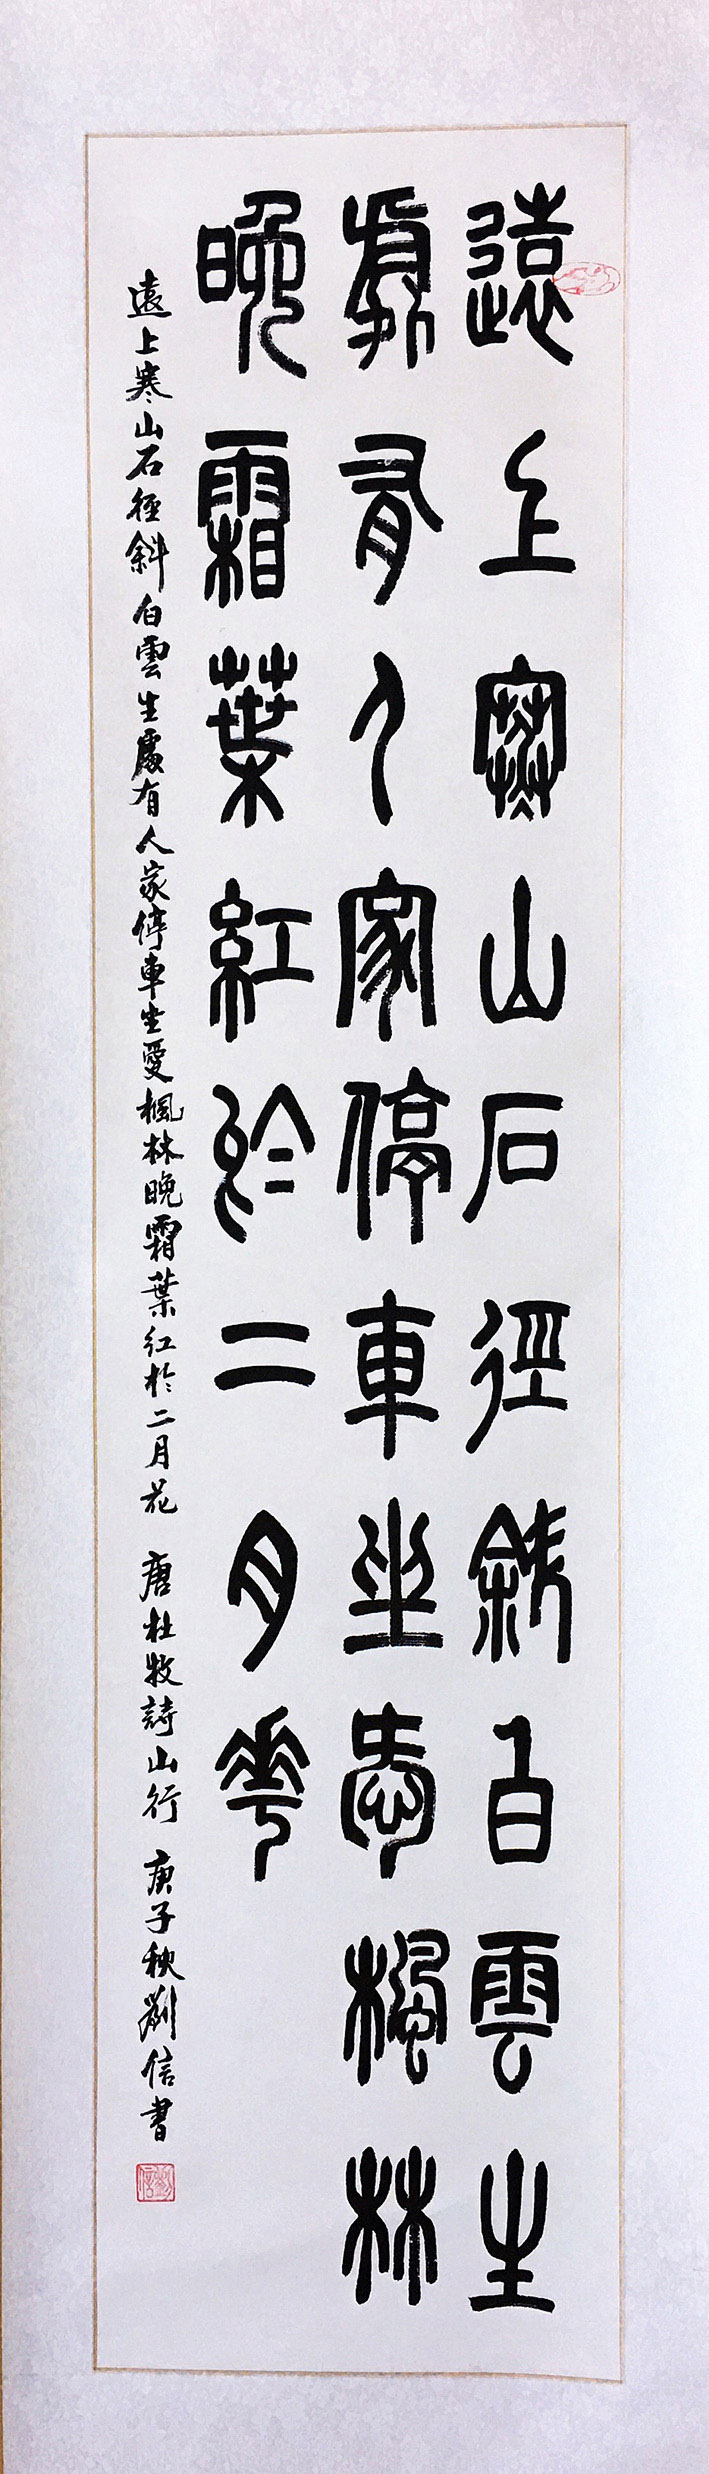 遠上寒山石徑斜白雲生
處有人家停車坐愛楓林
晚霜葉紅於二月花
遠上寒山石徑斜白雲生處有人家停車坐愛楓林晚霜葉紅於二月花 唐杜牧詩山行 庚子秋劉信書
劉信